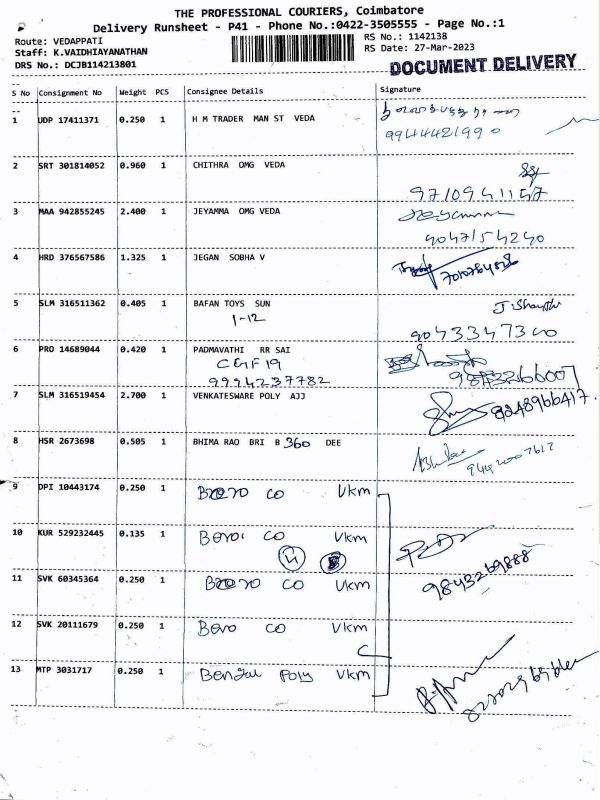 THE PROFESSIONAL COURIERS, Coimbatore
Delivery Runsheet - P41 - Phone No.:0422-3505555 - Page No.:1
Route: VEDAPPATI
Staff: K.VAIDHIAYANATHAN
DRS No.: DCJB114213801
RS No.: 1142138
RS Date: 27-Mar-2023
DOCUMENT DELIVERY
S No Consignment No Weight PCS Consignee Details Signature
1 UDP 17411371 0.250 1 H M TRADER MAN ST VEDA
9944421990
2 SRT 301814052 0.960 1 CHITHRA OMG VEDA
9710941157
3 MAA 942855245 2.400 1 JEYAMMA OMG VEDA
9047154240
4 HRD 376567586 1.325 1 JEGAN SOBHA V
5 SLM 316511362 0.405 1 BAFAN TOYS SUN
1-12
9043347300
6 PRO 14689044 0.420 1 PADMAVATHI RR SAI
CGF19
9994237782
7 SLM 316519454 2.700 1 VENKATESWARE POLY AJJ
8 HSR 2673698 0.505 1 BHIMA RAO BRI B 360 DEE
9 DPI 10443174 0.250 1 CO Vkm
10 KUR 529232445 0.135 1 CO Vkm
11 SVK 60345364 0.250 1 CO Vkm
9843269888
12 SVK 20111679 0.250 1 Bero CO Vkm
13 MTP 3031717 0.250 1 Bengal Poly Vkm